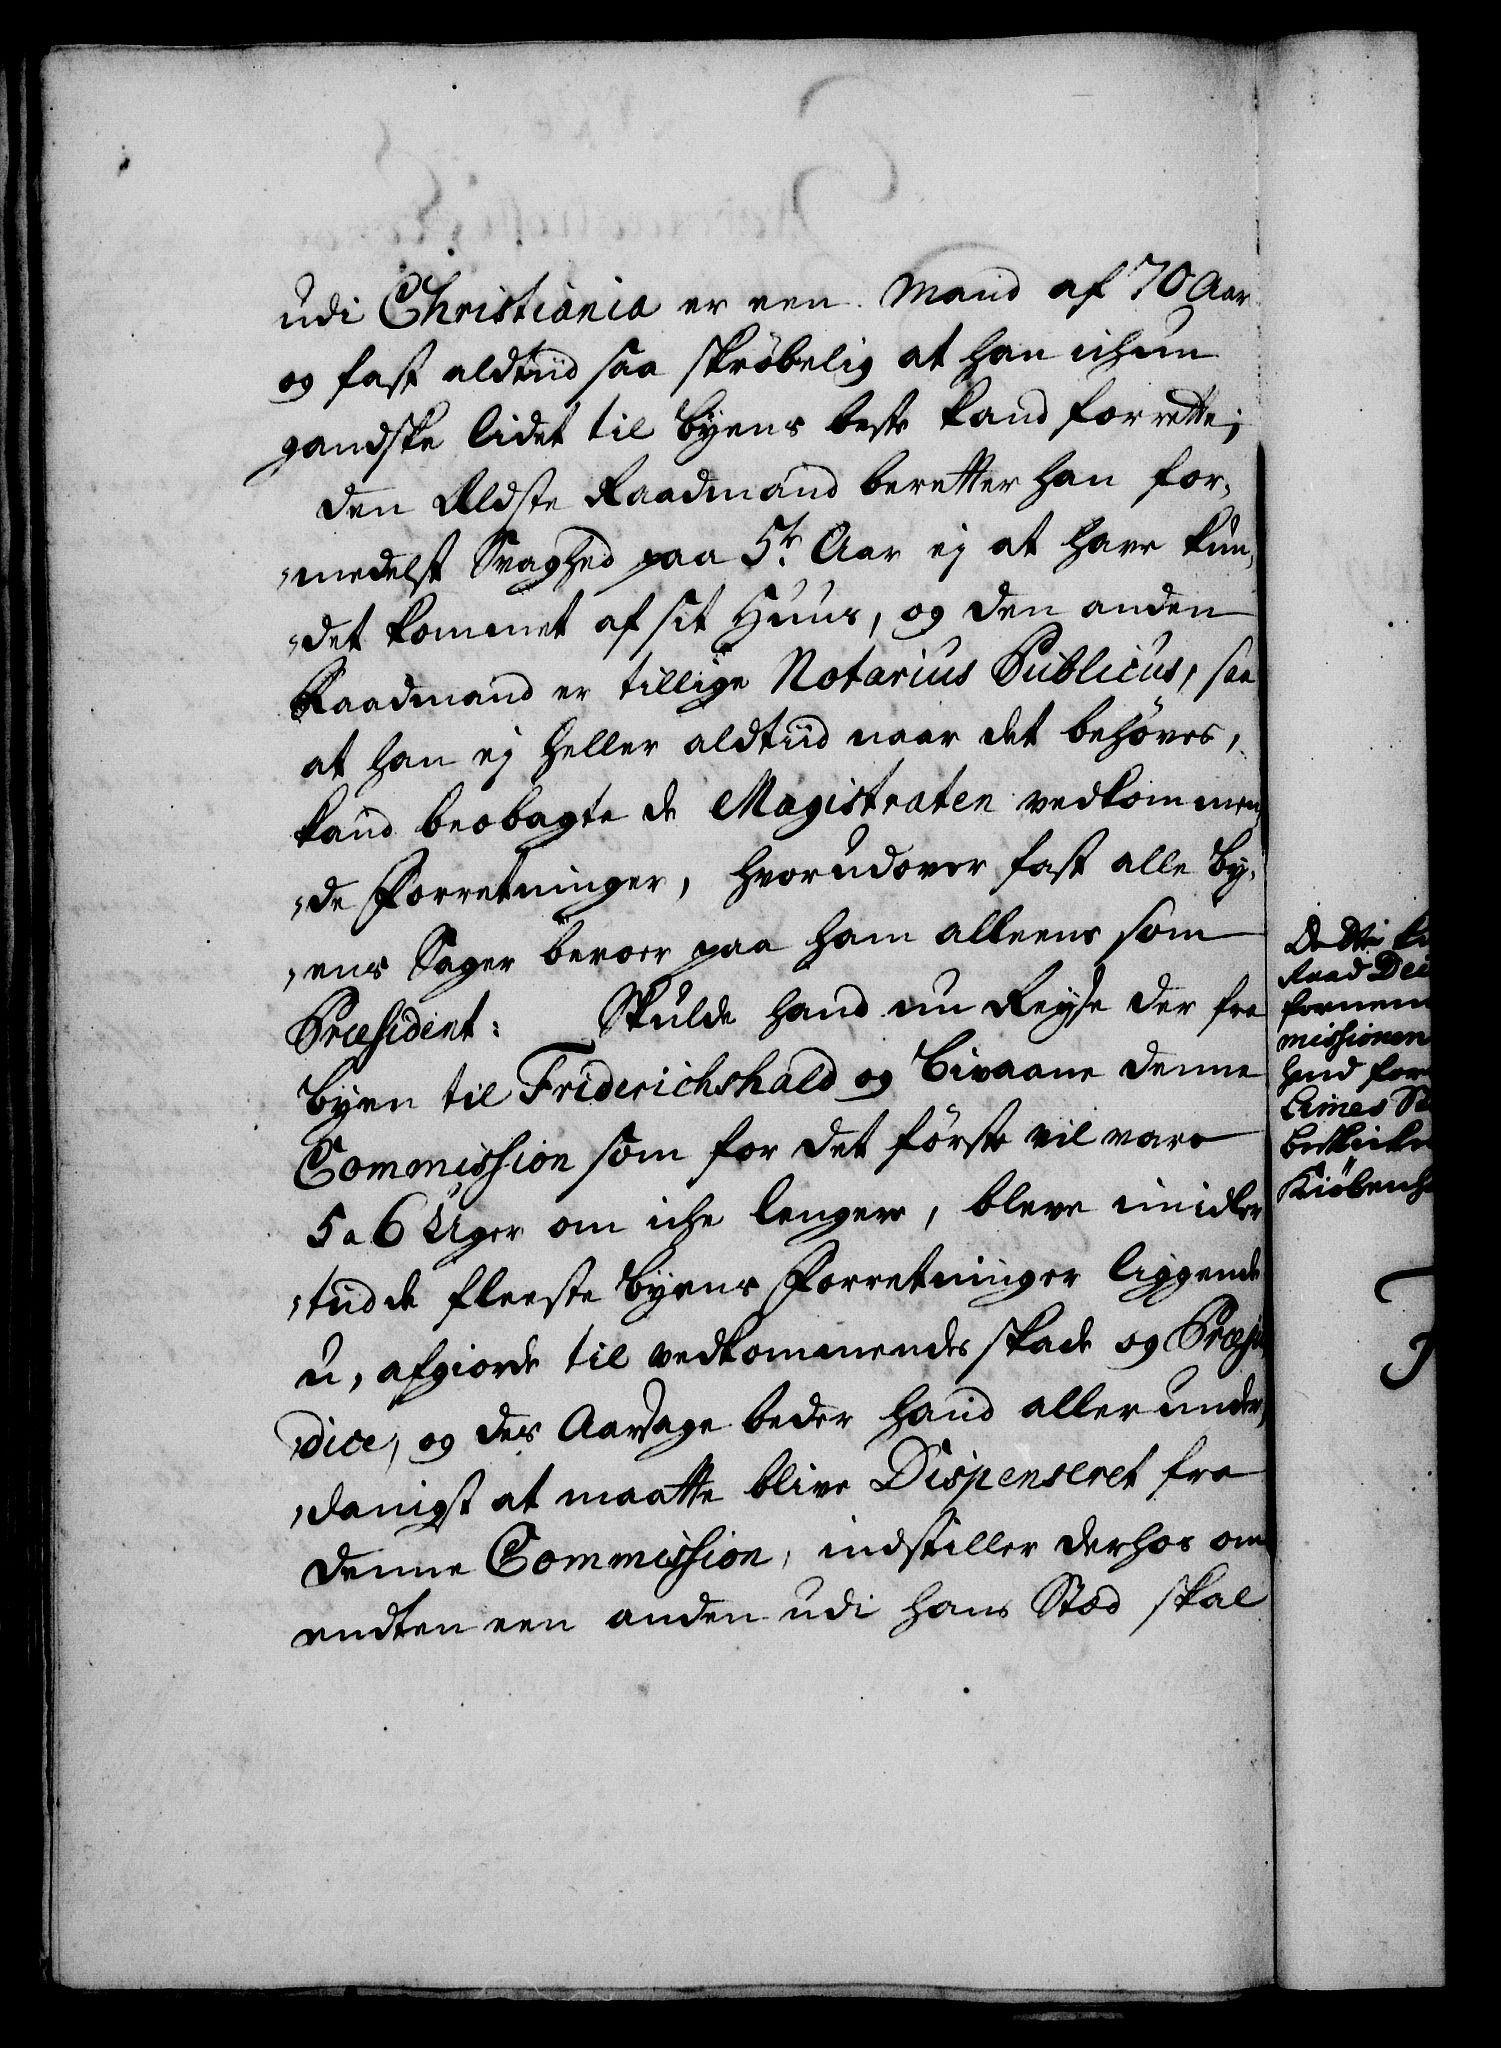 udi Christiania er een Mand af 70 Aar
og fast aldtiid saa skröbelig at han ichun
gandske lidet til Byens beste kand forrette;
den Ældste Raadmand beretter han for-
„medelst Svaghed paa 5r. Aar ej at have kun-
„det kommet af sit Huus, og den anden
Raadmand er tillige Notarius Publicus, saa
at han ej heller aldtiid naar det behöves,
kand beobagte de Magistraten vedkommen-
„de Forretninger, hvorudover fast alle By-
„ens Sager beroer paa ham alleene som
Præsident: Skulde hand nu Reyse der fra
Byen til Friderichshald og bivaane denne
Commission som for det förste vil vare
5 a 6 Uger om iche lengere, bleve imidler
„tiid de fleeste Byens Forretninger liggende
u-afgiorde til vedkommendes skade og Præju
„dice, og des Aarsage beder hand allerunder-
„danigst at maatte blive Dispenseret fra
denne Commission, indstiller derhos om
endten een anden udi hans Stæd skal
Raad
missionen
hand for
Kiöbenh